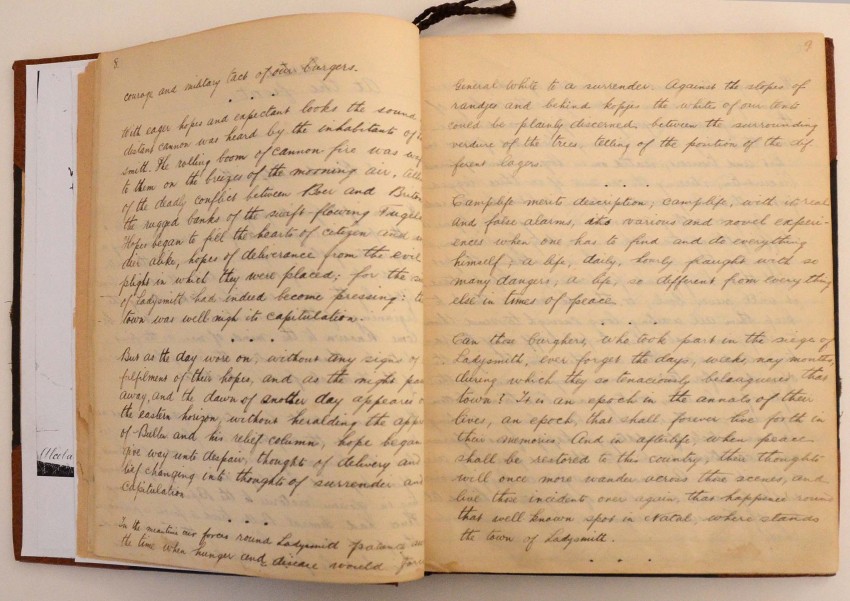 8.
courage and military tact of our burgers.
With eager hopes and expectant looks the sound
distant cannon was heard by the inhabitants of
smith. The rolling boom of cannon fire was
to them on the breizes of the mooning air,
of the deadly conflict between Boer and Briton
the rugged banks of the swift-flowing Tugela
Hopes began to fill the hearts of citizen and
dier alike, hopes of deliverance from the evil
plight in which they were placed; for the
of Ladysmith had indeed become pressing: the
town was well nigh its capitulation.
But as the day wore on, without any signs of
fulfilment of their hopes, and as the night
away, and the dawn of another day appeared
the eastern horizon, without heralding the
of Buller and his relief column, hope began
give way unto despair, thought of delivery and
changing into thoughts of surrender and
capitulation
In the meantime our forces round Ladysmith
the time when hunger and disease would
9
General White to a surrender. Against the slopes of
randjes and behind kopjes the white of our tents
could be plainly discerned between the surrounding
verdure of the trees, telling of the position of the dif
ferent lagers.
Camplife merits description; camplife, with its real
and false alarms, various and novel experi-
ences when one has to find and do everything
himself; a life, daily, hourly fraught with so
many dangers; a life, so different from everything
else in times of peace.
Can those burghers, who took part in the siege of
Ladysmith, ever forget the days, weeks, nay months,
during which they so tenaciously belaguered that
town? It is an epoch in the annals of their
lives, an epoch, that shall forever live forth in
their memories. And in afterlife, when peace
shall be restored to this country, their thoughts
will once more wander across those scenes, and
live those incidents over again, that happened round
that well known spot in Natal, where stands
the town of Ladysmith.